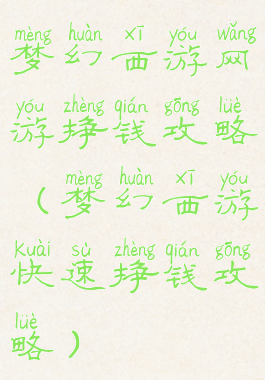 mèng huàn xī yóu wǎng
梦幻西游网
yóu zhèng qián gōng lüè
游挣钱攻略
mèng huàn xī yóu
（梦幻西游
kuài sù zhèng qián gōng
快速挣钱攻
lüè
略）